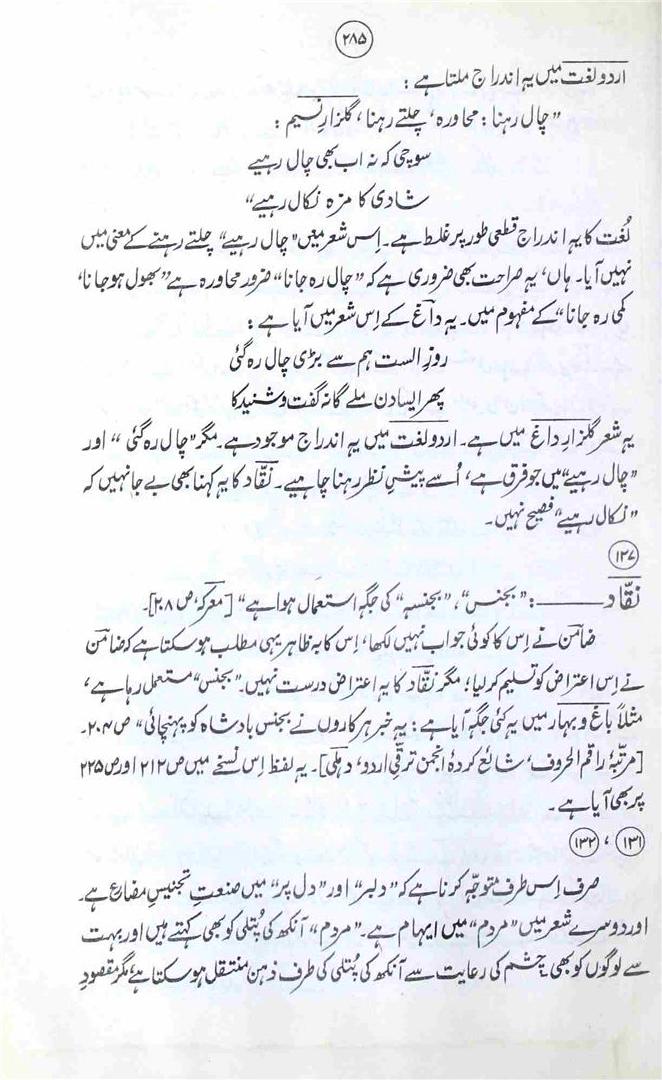 ۲۸۵
اردو لغت میں یہ اندراج ملتا ہے :
"چال رہنا : محاورہ، چلتے رہنا، گلزارِ نسیم :
سوچی کہ نہ اب بھی چال رہیے
شادی کا مزہ نکال رہیے"
لُغت کا یہ اندراج قطعی طور پر غلط ہے۔ اِس شعر میں "چال رہیے" چلتے رہنے کے معنی میں
نہیں آیا۔ ہاں، یہ صراحت بھی ضروری ہے کہ "چال رہ جانا" ضرور محاورہ ہے "بھول ہو جانا،
کمی رہ جانا" کے مفہوم میں۔ یہ داغؔ کے اِس شعر میں آیا ہے :
روزِ الست ہم سے بڑی چال رہ گئی
پھر ایسا دن ملے گا نہ گفت و شنید کا
یہ شعر گلزارِ داغ میں ہے۔ اردو لغت میں یہ اندراج موجود ہے۔ مگر "چال رہ گئی" اور
"چال رہیے" میں جو فرق ہے، اُسے پیشِ نظر رہنا چاہیے۔ نقّاد کا یہ کہنا بھی بے جا نہیں کہ
"نکال رہیے" فصیح نہیں۔
۱۲۷
نقّاد ــــــ : "بجنس"، "بجنسہ" کی جگہ استعمال ہوا ہے" [معرکہ، ص ۲۸]۔
ضامنؔ نے اِس کا کوئی جواب نہیں لکھا، اِس کا بہ ظاہر یہی مطلب ہو سکتا ہے کہ ضامنؔ
نے اِس اعتراض کو تسلیم کر لیا؛ مگر نقّاد کا یہ اعتراض درست نہیں۔ "بجنس" مستعمل رہا ہے،
مثلاً باغ و بہار میں یہ کئی جگہ آیا ہے : یہ خبر ہرکاروں نے بجنس بادشاہ کو پہنچائی" ص ۲۰۴۔
[مرتّبۂ راقم الحروف، شائع کردۂ انجمن ترقّیِ اردو، دہلی]۔ یہ لفظ اِس نسخے میں ص ۲۱۲ اور ص ۲۲۵
پر بھی آیا ہے۔
۱۳۱ ، ۱۳۲
صرف اِس طرف متوجّہ کرنا ہے کہ "دلبر" اور "دل پر" میں صنعتِ تجنیسِ مضارع ہے۔
اور دوسرے شعر میں "مردم" میں ایہام ہے۔ "مردم" آنکھ کی پُتلی کو بھی کہتے ہیں اور بہت
سے لوگوں کو بھی چشم کی رعایت سے آنکھ کی پُتلی کی طرف ذہن منتقل ہو سکتا ہے، مگر مقصودِ